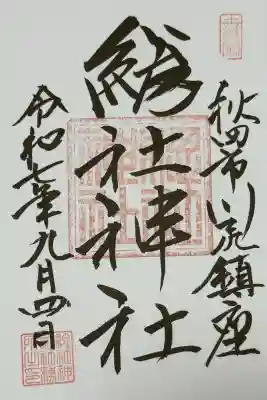 秋田市川尻鎮座
總社神社
令和七年九月四日